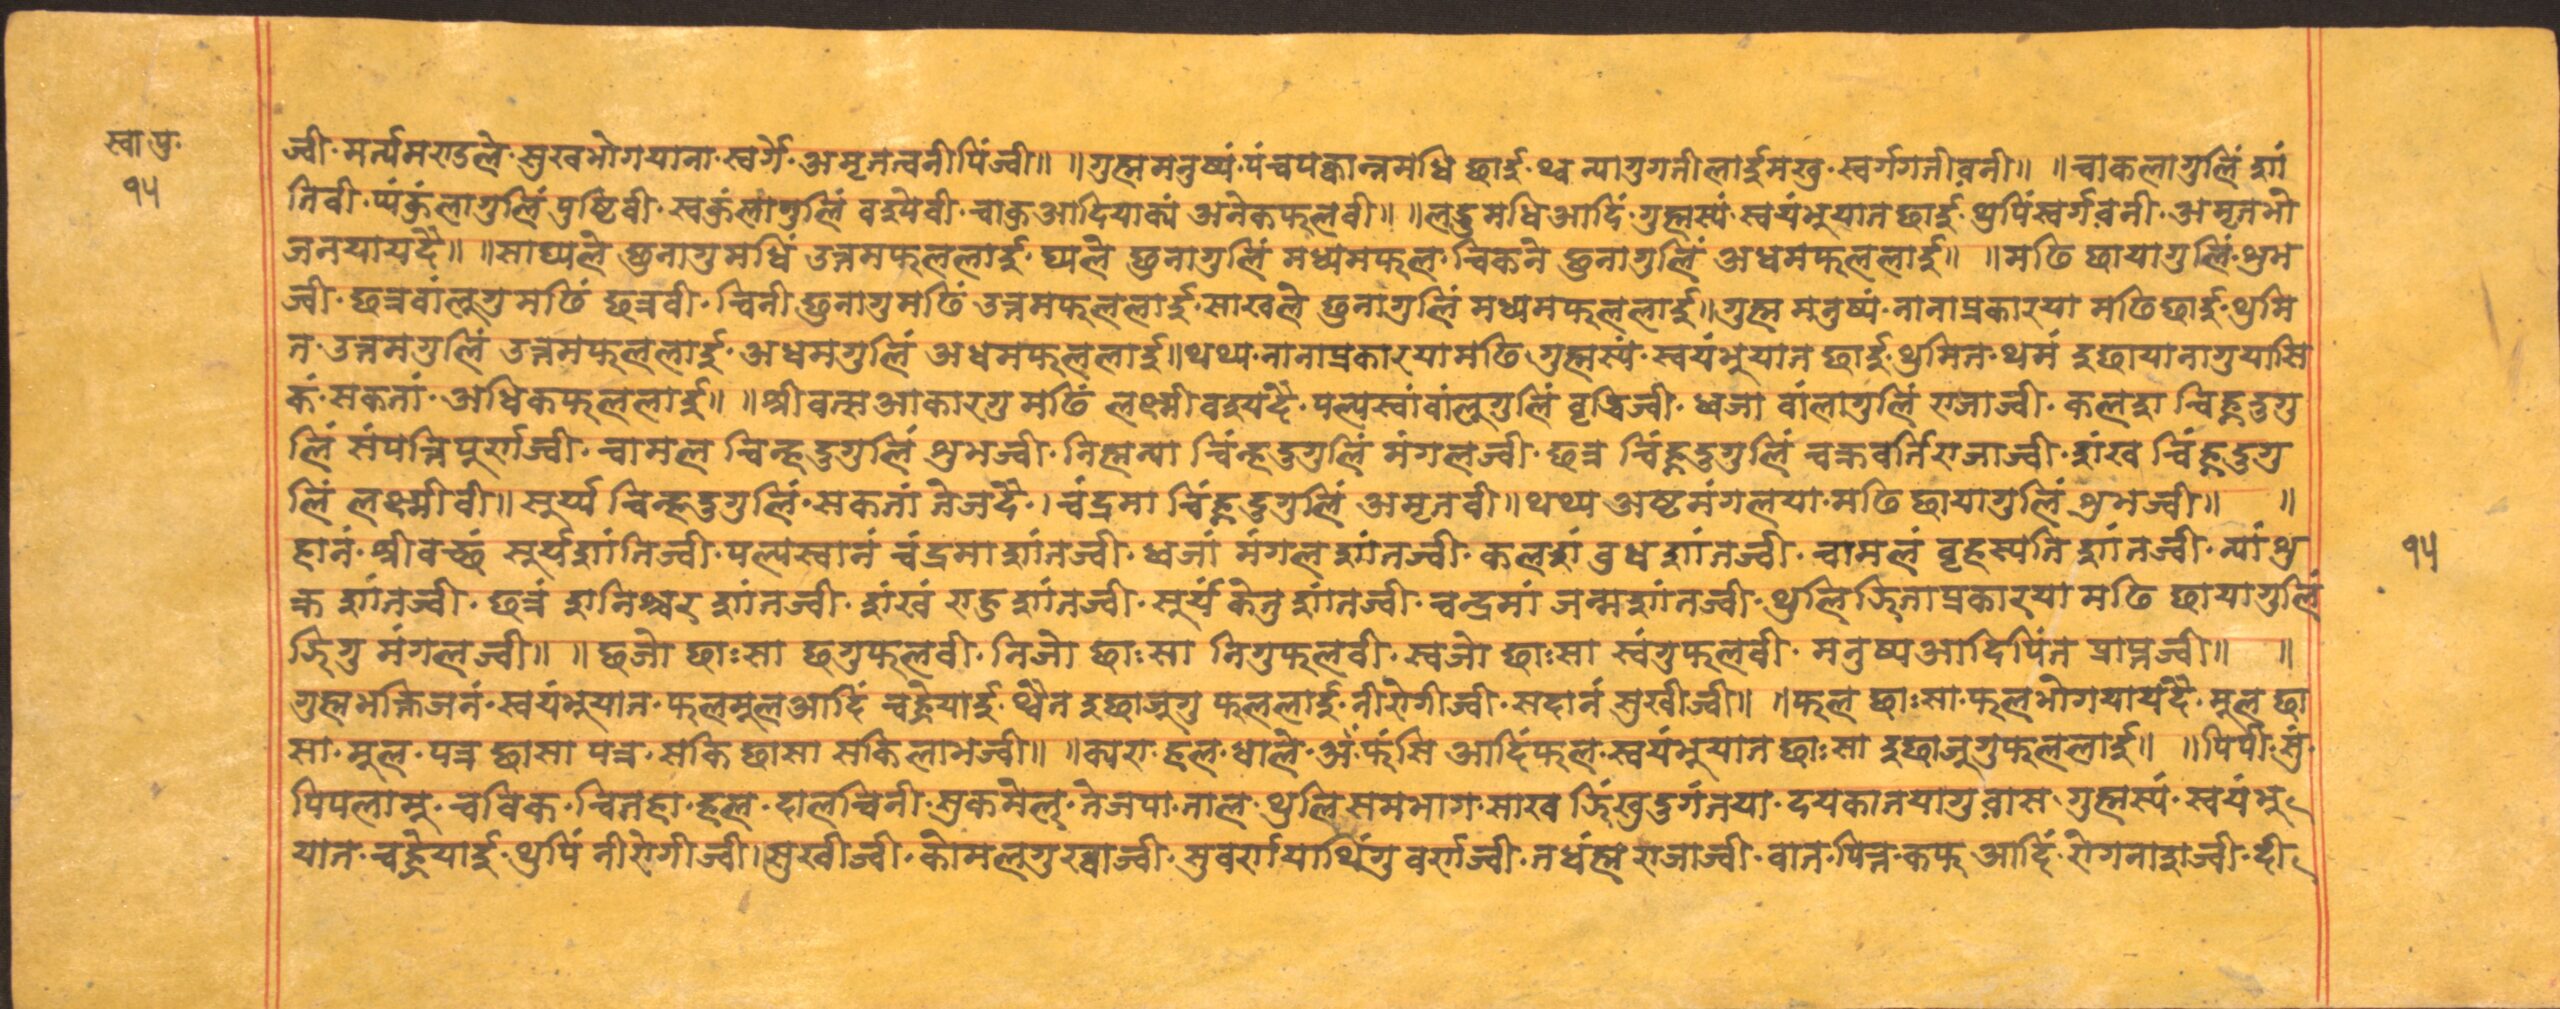 स्वा पु
१५
ज्वी· मर्त्यमण्डले· सुखभोगयाना· स्वर्गे· अमृतत्वनीपिंज्वी॥ ॥गुह्ममनुष्यं· पंच्वपक्वान्नमधि छार्इ· थ्व न्यागुगतीलार्इमखु· स्वर्गगतीवनी॥ ॥चाकलागुलिं शां
तिवी· प्यंकुंलागुलिं पुष्टिवी· स्वकुंलागुलिं वश्येवी· चाकुआदियाक्यं अनेकफलवी॥ ॥लड्डुमधिआदिं· गुह्मस्यं· स्वयंभुयात छार्इ· थुपिंस्वर्गवनी· अमृतभो
जनयायदै॥ ॥साघ्यले छुनागुमधिं उत्तमफललार्इ· घ्यले छुनागुलिं मध्यमफल· चिकने छुनागुलिं अधमफललार्इ॥ ॥मढि छायागुलिं· शुभ
ज्वी· छत्रवांलूगुमढिं छत्रवी· चिनी छुनागुमढिं उत्तमफललार्इ· साखले छुनागुलिं मध्यमफललार्इ॥गुह्म मनुष्यं· नानाप्रकारया मढिछार्इ· थुमि
त· उत्तमगुलिं उत्तमफललार्इ· अधमगुलिं अधमफललार्इ॥थथ्य· नानाप्रकारयामढि गुह्मस्यं· स्वयंभुयात छार्इ· थुमित· थमं दुछायानागुयासि
कं· सकतां· अधिकफललार्इ॥ ॥श्रीवत्सआकारगुमढिं लक्ष्मीवश्यदै· पल्यस्वांवांलूगुलिं वृद्धिज्वी· ध्वजा वांलागुलिं राजाज्वी· कलश चिह्नदुगु
लिं संपत्तिपुर्णज्वी· चामल चिन्हदुगुलिं शुभज्वी· निह्मन्या चिंन्हदुगुलिं मंगलज्वी· छत्र चिंह्नदुगुलिं चक्रवर्तिराजाज्वी· शंख चिंह्नदुगु
लिं लक्ष्मीवी॥सूर्य्य चिन्हदुगुलिं· सकतां तेजदै·। चंद्रमा चिंह्नदुगुलिं अमृतवी॥थथ्य अष्टमंगलया· मढि छायागुलिं शुभज्वी॥ ॥
हानं· श्रीवच्छं सूर्यशांतिज्वी· पल्यस्वानं चंद्रमाशांतज्वी· ध्वजां मंगल शांतज्वी· कलशं बुध शांतज्वी· चामलं वृहस्पति शांतज्वी· न्यां शु
क्र शांतज्वी· छत्रं शनिश्चर शांतज्वी· शंखं राहु शांतज्वी· सूर्यं केतु शांतज्वी· चन्द्रमां जन्मशांतज्वी· थुलि जिताप्रकारया मढि छायागुलिं
जिगु मंगलज्वी॥ ॥छजो छाःसा छगुफलवी· निजो छाःसा निगुफलवी· स्वजो छाःसा स्वंगुफलवी· मनुष्यआदिपिंत प्राप्तज्वी॥ ॥
गुह्मभक्तिजनं· स्वयंभुयात· फलमूलआदिं चह्रेयार्इ· थ्वैत दुछाजुगु फललार्इ· नीरोगीज्वी· सदानं सुखीज्वी॥ ॥फल छाःसा· फलभोगयायदै· मूल छा
सा· मूल· पत्र छासा पत्र· सकि छासा सकिलाभज्वी॥ ॥क्यरा· हल· धाले· अं· फंसि आदिंफल· स्वयंभुयात छाःसा दुछाजुगुफललार्इ॥ ॥पिपी· सुं·
पिपलामु· चविक· चितहा· हल· दालचिनी· सुकमेल्· तेजपा· नाल· थुलि समभाग· साख जिंखुदुगंतया· दयकातयागु वास गुह्मस्यं· स्वयंभु
यात· चह्रेयार्इ· थुपिं नीरोगीज्वी। सुखीज्वी· कोमलगु ख्वाज्वी· सुवर्णयाथिंगु वर्णज्वी· तधंह्म राजाज्वी· वात· पित्त· कफ आदिं· रोगनाशज्वी· दी
१५